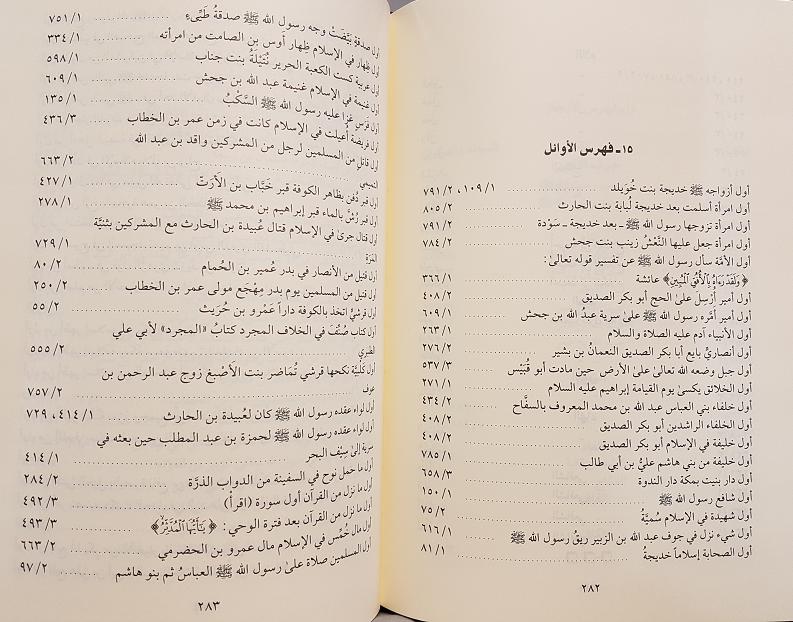 ١٥ـ فهرس الأوائل
أول أزواجه ﷺ خديجة بنت خُوَيلد ١٠٩/١، ٧٩١/٢
أول امرأة أسلمت بعد خديجة لُبابة بنت الحارث ٨٠٥/٢
أول امرأة تزوجها رسول الله ﷺ ـ بعد خديجة ـ سَوْدة ٧٩١/٢
أول امرأة جعل عليها النَّعْشُ زينب بنت جحش ٧٨٤/٢
أول الأمَّة سأل رسول الله ﷺ عن تفسير قوله تعالىٰ:
﴿وَلَقَدْ رَءَاهُ بِالْأُفُقِ الْمُبِينِ﴾ عائشة ٣٦٦/١
أول أمير أُرْسِلَ علىٰ الحج أبو بكر الصديق ٤٠٨/٢
أول أمير أمَّره رسول الله ﷺ علىٰ سرية عبدُ الله بن جحش ٦٠٩/١
أول الأنبياء آدم عليه الصلاة والسلام ٢٦٣/١
أول أنصاريٍّ بايع أبا بكر الصديق النعمانُ بن بشير ٢٧٦/٢
أول جبل وضعه الله تعالىٰ علىٰ الأرض حين مادت أبو قُبَيْس ٥٣٧/٣
أول الخلائق يكسىٰ يوم القيامة إبراهيم عليه السلام ٢٧١/١
أول خلفاء بني العباس عبد الله بن محمد المعروف بالسفَّاح ٤٣٤/٢
أول الخلفاء الراشدين أبو بكر الصديق ٤٠٨/٢
أول خليفة في الإسلام أبو بكر الصديق ٤٠٨/٢
أول خليفة من بني هاشم عليُّ بن أبي طالب ٧٨٥/١
أول دار بنيت بمكة دار الندوة ٦٥٨/٣
أول شافع رسول الله ﷺ ١٥٠/١
أول شهيدة في الإسلام سُميَّة ٧٥/٢
أول شيء نزل في جوف عبد الله بن الزبير ريقُ رسول الله ﷺ ٦١٦/١
أول الصحابة إسلاماً خديجةُ ٨١/١
٢٨٢
أول صدقةٍ بَيَّضَتْ وجه رسول الله ﷺ صدقةُ طَيِّىءٍ ٧٥١/١
أول ظِهار في الإسلام ظِهار أوس بن الصامت من امرأته ٣٣٤/١
أول عربية كست الكعبة الحرير نُتَيْلَةُ بنت جناب ٥٩٨/١
أول غنيمة في الإسلام غنيمة عبد الله بن جحش ٦٠٩/١
أول فَرَسٍ غزا عليه رسول الله ﷺ السَّكْبُ ١٣٥/١
أول فريضة أُعيلت في الإسلام كانت في زمن عمر بن الخطاب ٤٣٦/٣
أول قاتلٍ من المسلمين لرجل من المشركين واقد بن عبد الله
التميمي ٦٦٣/٢
أول قبر دُفن بظاهر الكوفة قبر خَبَّاب بن الأَرَتّ ٤٢٧/١
أول قبر رُشَّ بالماء قبر إبراهيم بن محمد ﷺ ٢٧٨/١
أول قتال جرىٰ في الإسلام قتال عُبيدة بن الحارث مع المشركين بثنيَّة
المَرَة ٧٢٩/١
أول قتيل من الأنصار في بدر عُمير بن الحُمام ٨٠/٢
أول قتيل من المسلمين يوم بدر مِهْجَع مولى عمر بن الخطاب ٢٥٠/٢
أول قرشيٍّ اتخذ بالكوفة داراً عَمْرو بن حُرَيث ٥٥/٢
أول كتاب صُنِّفَ في الخلاف المجرد كتابُ «المجرد» لأبي علي
الطبري ٥٥٥/٢
أول كَلْبيَّة نكحها قرشي تُماضر بنت الأَصْبغ زوج عبد الرحمن بن
عوف ٧٥٧/٢
أول لواء عقده رسول الله ﷺ كان لعُبيدة بن الحارث ٤١٤/١، ٧٢٩
أول لواء عقده رسول الله ﷺ لحمزة بن عبد المطلب حين بعثه في
سرية إلىٰ سِيْف البحر ٤١٤/١
أول ما حمل نوح في السفينة من الدواب الذرَّة ٢٨٤/٢
أول ما نزل من القرآن أول سورة (اقرأ) ٤٩٢/٣
أول ما نزل من القرآن بعد فترة الوحي: ﴿يَأَيُّهَا الْمُدَّثِّرُ﴾ ٤٩٣/٣
أول مال خُمِّس في الإسلام مال عمرو بن الحضرمي ٦٦٣/٢
أول المسلمين صلاة علىٰ رسول الله ﷺ العباسُ ثم بنو هاشم ٩٧/٢
٢٨٣